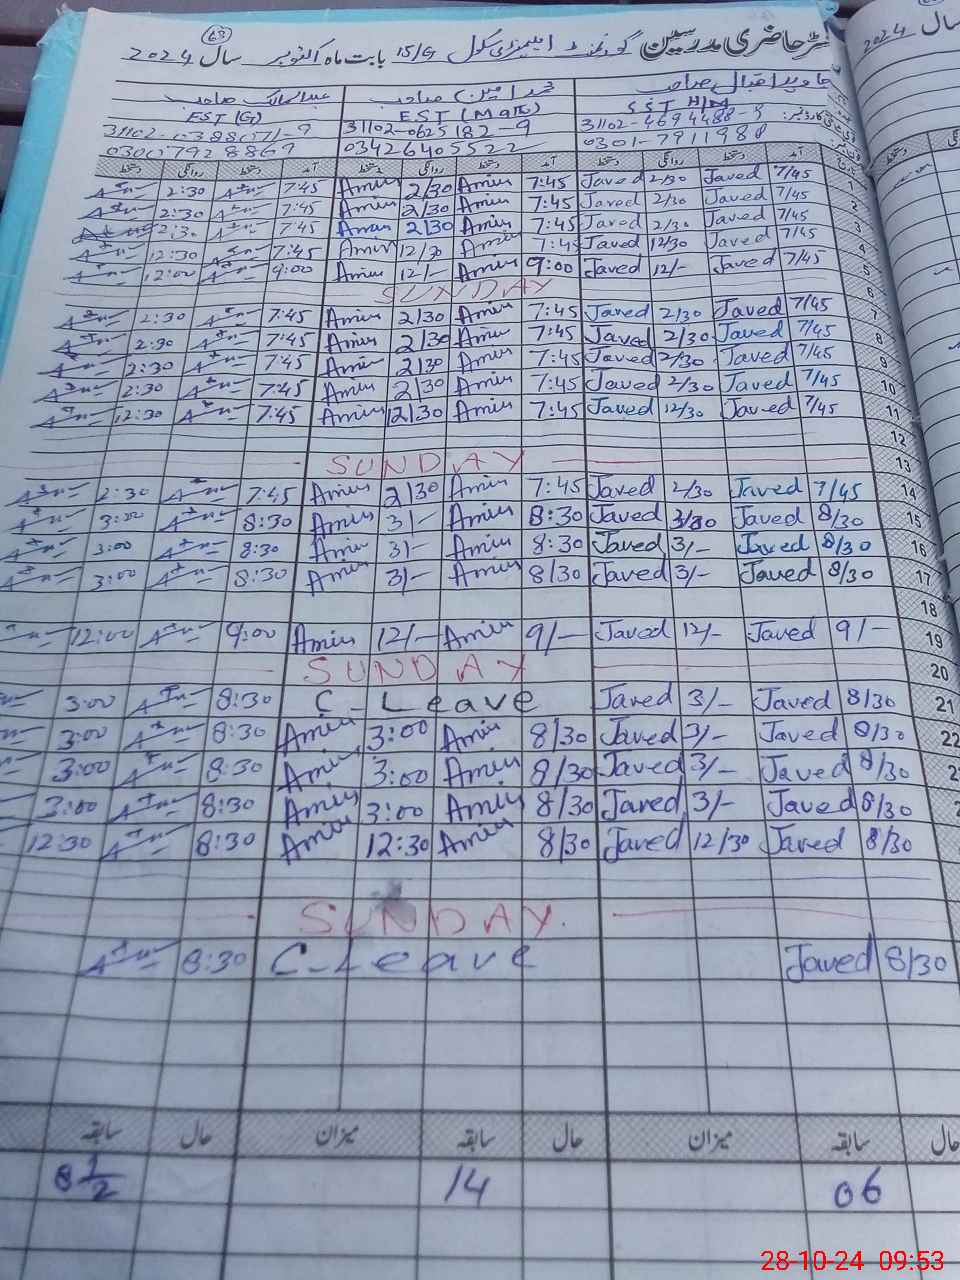 63
رجسٹر حاضری مدرسین گورنمنٹ ایلیمنٹری سکول 15/G بابت ماہ اکتوبر سال 2024
سال 2024
جاوید اقبال صاحب محمد امین صاحب عبدالمالک صاحب
SST H/M EST (Math) EST (G)
31102-4694488-9 31102-0625182-9 31102-0388071-9
0301-7911988 03426405522 03007928869
آمد دستخط روانگی دستخط آمد دستخط روانگی دستخط آمد دستخط روانگی دستخط
1 7/45 Javed 2/30 Javed 7:45 Amin 2/30 Amin 7:45 2:30
2 7/45 Javed 2/30 Javed 7:45 Amin 2/30 Amin 7:45 2:30
3 7/45 Javed 2/30 Javed 7:45 Amin 2/30 Amin 7:45 2:30
4 7/45 Javed 12/30 Javed 7:45 Amin Amin 7:45 12:30
5 7/45 Javed 12/- Javed 9:00 Amin 12/- Amin 9:00 12:00
6 SUNDAY
7 7/45 Javed 2/30 Javed 7:45 Amin 2/30 Amin 7:45 2:30
8 7/45 Javed 2/30 Javed 7:45 Amin 2/30 Amin 7:45 2:30
9 7/45 Javed 2/30 Javed 7:45 Amin 2/30 Amin 7:45 2:30
10 7/45 Javed 2/30 Javed 7:45 Amin 2/30 Amin 7:45 2:30
11 7/45 Javed 12/30 Javed 7:45 Amin 12/30 Amin 7:45 12:30
12
13 SUNDAY
14 7/45 Javed 2/30 Javed 7:45 Amin 2/30 Amin 7:45 2:30
15 8/30 Javed 3/30 Javed 8:30 Amin 3/- Amin 8:30 3:00
16 8/30 Javed 3/- Javed 8:30 Amin 3/- Amin 8:30 3:00
17 8/30 Javed 3/- Javed 8/30 Amin 3/- Amin 8:30 3:00
18
19 9/- Javed 12/- Javed 9/- Amin 12/- Amin 9:00 12:00
20 SUNDAY
21 8/30 Javed 3/- Javed C-Leave 8:30 3:00
22 8/30 Javed 3/- Javed 8/30 Amin 3:00 Amin 8:30 3:00
8/30 Javed 3/- Javed 8/30 Amin 3:00 Amin 8:30 3:00
8/30 Javed 3/- Javed 8/30 Amin 3:00 Amin 8:30 3:00
8/30 Javed 12/30 Javed 8/30 Amin 12:30 Amin 8:30 12:30
SUNDAY.
8/30 Javed C-Leave 8:30
حال سابقہ میزان حال سابقہ میزان حال سابقہ
06 14 8 1/2
28-10-24 09:53